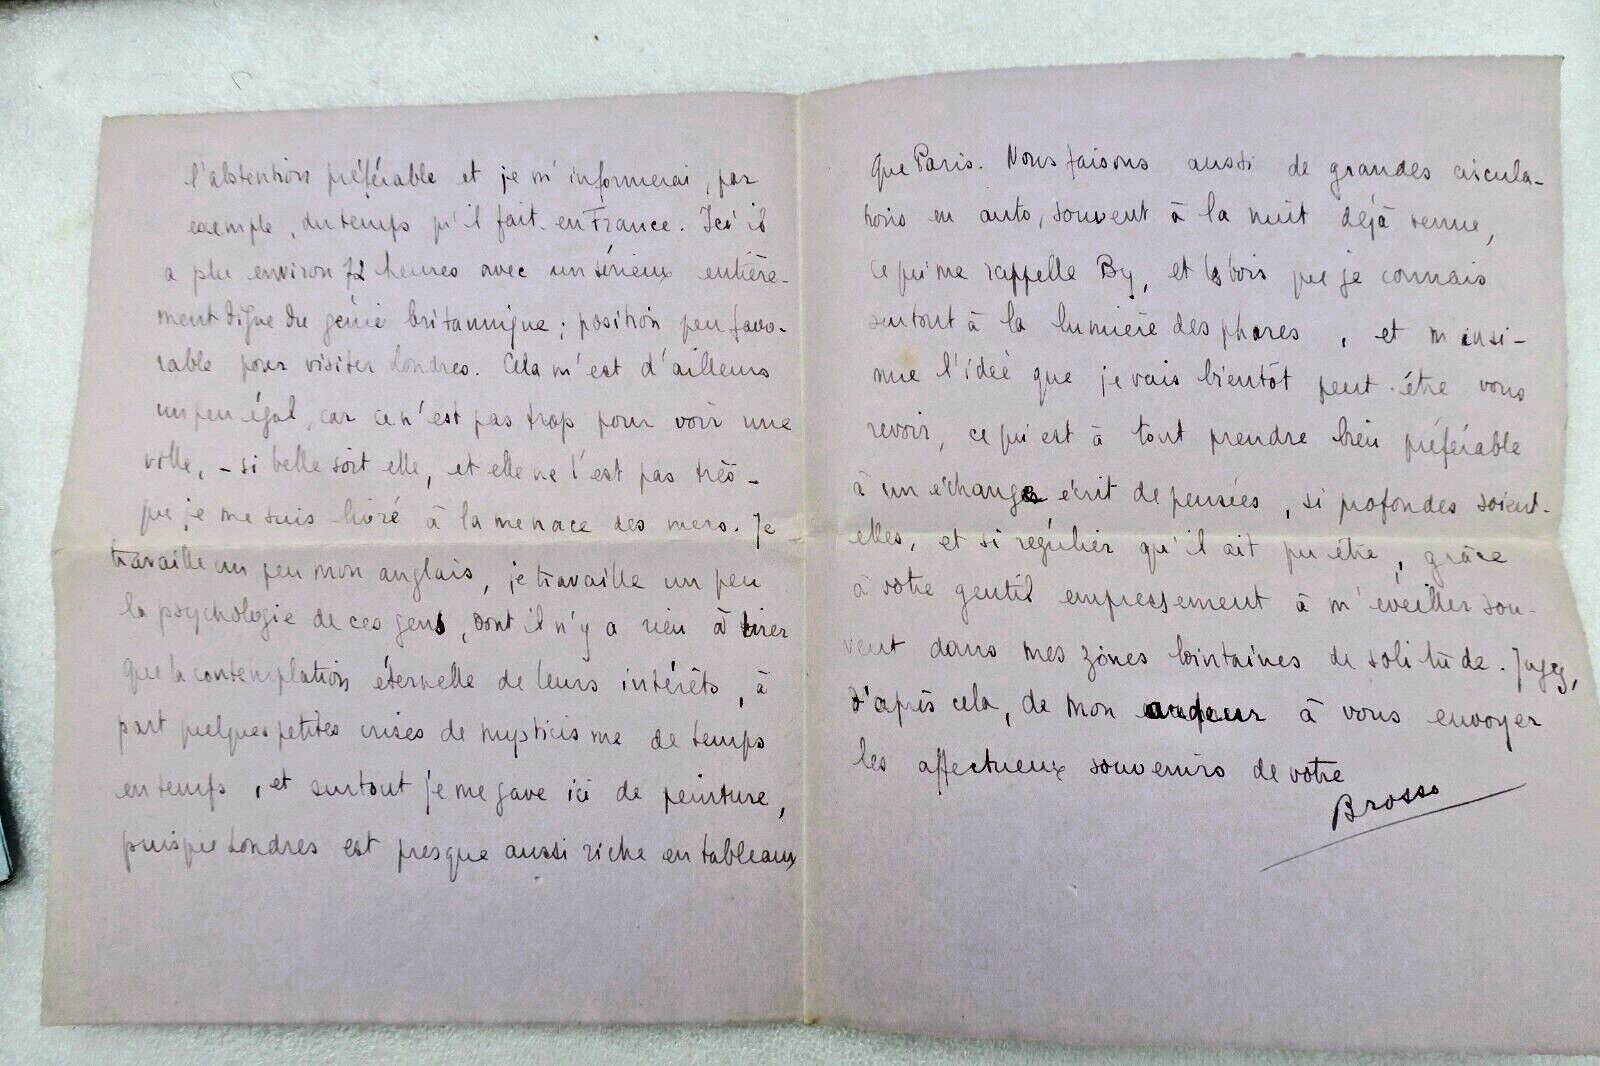 l'abstention préférable et je m'informerai, par
exemple, du temps qu'il fait en France. Ici il
a plu environ 72 heures avec un sérieux entière-
ment digne du génie britannique ; position peu favo-
rable pour visiter Londres. Cela m'est d'ailleurs
un peu égal, car ce n'est pas trop pour voir une
ville, - si belle soit elle, et elle ne l'est pas très -
que je me suis livré à la menace des mers. Je
travaille un peu mon anglais, je travaille un peu
la psychologie de ces gens, dont il n'y a rien à tirer
que la contemplation éternelle de leurs intérêts, à
part quelques petites crises de mysticisme de temps
en temps, et surtout je me gave ici de peinture,
puisque Londres est presque aussi riche en tableaux
que Paris. Nous faisons aussi de grandes circula-
tions en auto, souvent à la nuit déjà venue,
ce qui me rappelle By, et les bois que je connais
surtout à la lumière des phares, et m'insi-
nue l'idée que je vais bientôt peut-être vous
revoir, ce qui est à tout prendre bien préférable
à un échange écrit de pensées, si profondes soient-
elles, et si régulier qu'il ait pu être, grâce
à votre gentil empressement à m'éveiller sou-
vent dans mes zônes lointaines de solitude. Jugez,
d'après cela, de mon ardeur à vous envoyer
les affectueux souvenirs de votre
Brosso